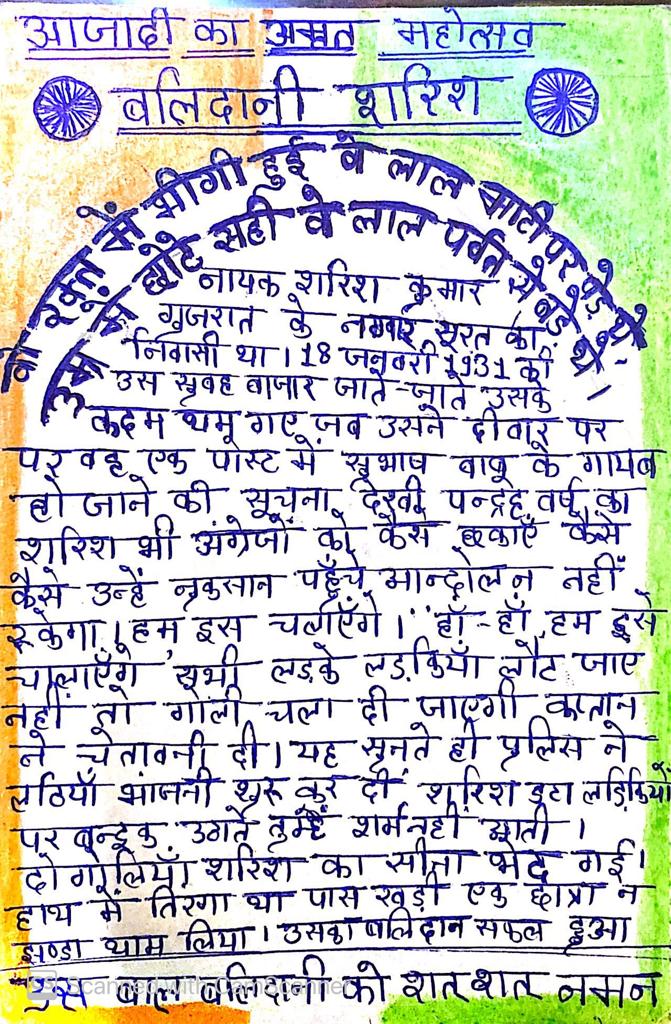 आजादी का अमृत महोत्सव
बलिदानी शरिश
वो रक्त में भीगी हुई वे लाल माटी पर पड़े थे -
उम्र में छोटे सही वे लाल पर्वत से बड़े थे -
नायक शरिश कुमार
गुजरात के नगर सूरत का
निवासी था। 18 जनवरी 1931 की
उस सुबह बाजार जाते-जाते उसके
कदम थम गए जब उसने दीवार पर
पर वह एक पोस्ट में सुभाष बाबू के गायब
हो जाने की सूचना देखी पन्द्रह वर्ष का
शरिश भी अंग्रेजों को कैसे छकाएँ कैसे
कैसे उन्हें नुकसान पहुँचे आन्दोलन नहीं
रुकेगा। हम इस चलाएँगे। "हाँ-हाँ हम इसे
चालाएँगे सभी लड़के लड़कियाँ लौट जाए
नहीं तो गोली चला दी जाएगी कप्तान
ने चेतावनी दी। यह सुनते ही पुलिस ने
लठियाँ भाजनी शुरू कर दी शरिश डटा लड़िकियों
पर बन्दूक उगते तुम्हें शर्म नहीं आती।
दो गोलियाँ शरिश का सीना भेद गई।
हाथ में तिरगा था पास खड़ी एक छात्रा न
झण्डा थाम लिया। उसका बलिदान सफल हुआ
इस बाल बलिदानी को शत् शत् नमन
Scanned with CamScanner